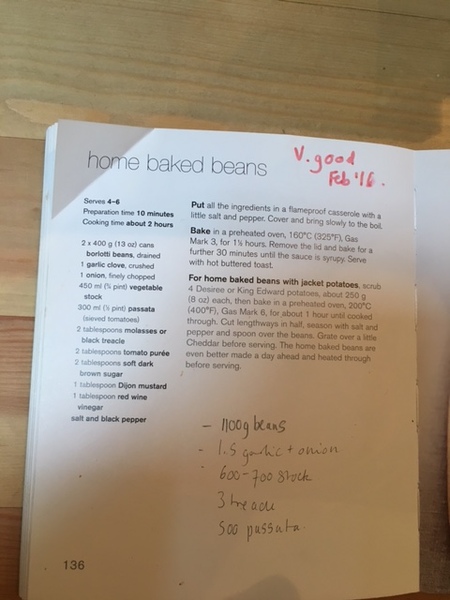 home baked beans
V. good
Feb '16.
Serves 4–6
Preparation time 10 minutes
Cooking time about 2 hours
2 x 400 g (13 oz) cans
borlotti beans, drained
1 garlic clove, crushed
1 onion, finely chopped
450 ml (¾ pint) vegetable
stock
300 ml (½ pint) passata
(sieved tomatoes)
2 tablespoons molasses or
black treacle
2 tablespoons tomato purée
2 tablespoons soft dark
brown sugar
1 tablespoon Dijon mustard
1 tablespoon red wine
vinegar
salt and black pepper
Put all the ingredients in a flameproof casserole with a
little salt and pepper. Cover and bring slowly to the boil.
Bake in a preheated oven, 160°C (325°F), Gas
Mark 3, for 1½ hours. Remove the lid and bake for a
further 30 minutes until the sauce is syrupy. Serve
with hot buttered toast.
For home baked beans with jacket potatoes, scrub
4 Desiree or King Edward potatoes, about 250 g
(8 oz) each, then bake in a preheated oven, 200°C
(400°F), Gas Mark 6, for about 1 hour until cooked
through. Cut lengthways in half, season with salt and
pepper and spoon the beans. Grate over a little
Cheddar before serving. The home baked beans are
even better made a day ahead and heated through
before serving.
- 1100g beans
- 1.5 garlic + onion
600-700 stock
3 treacle
500 passata.
136